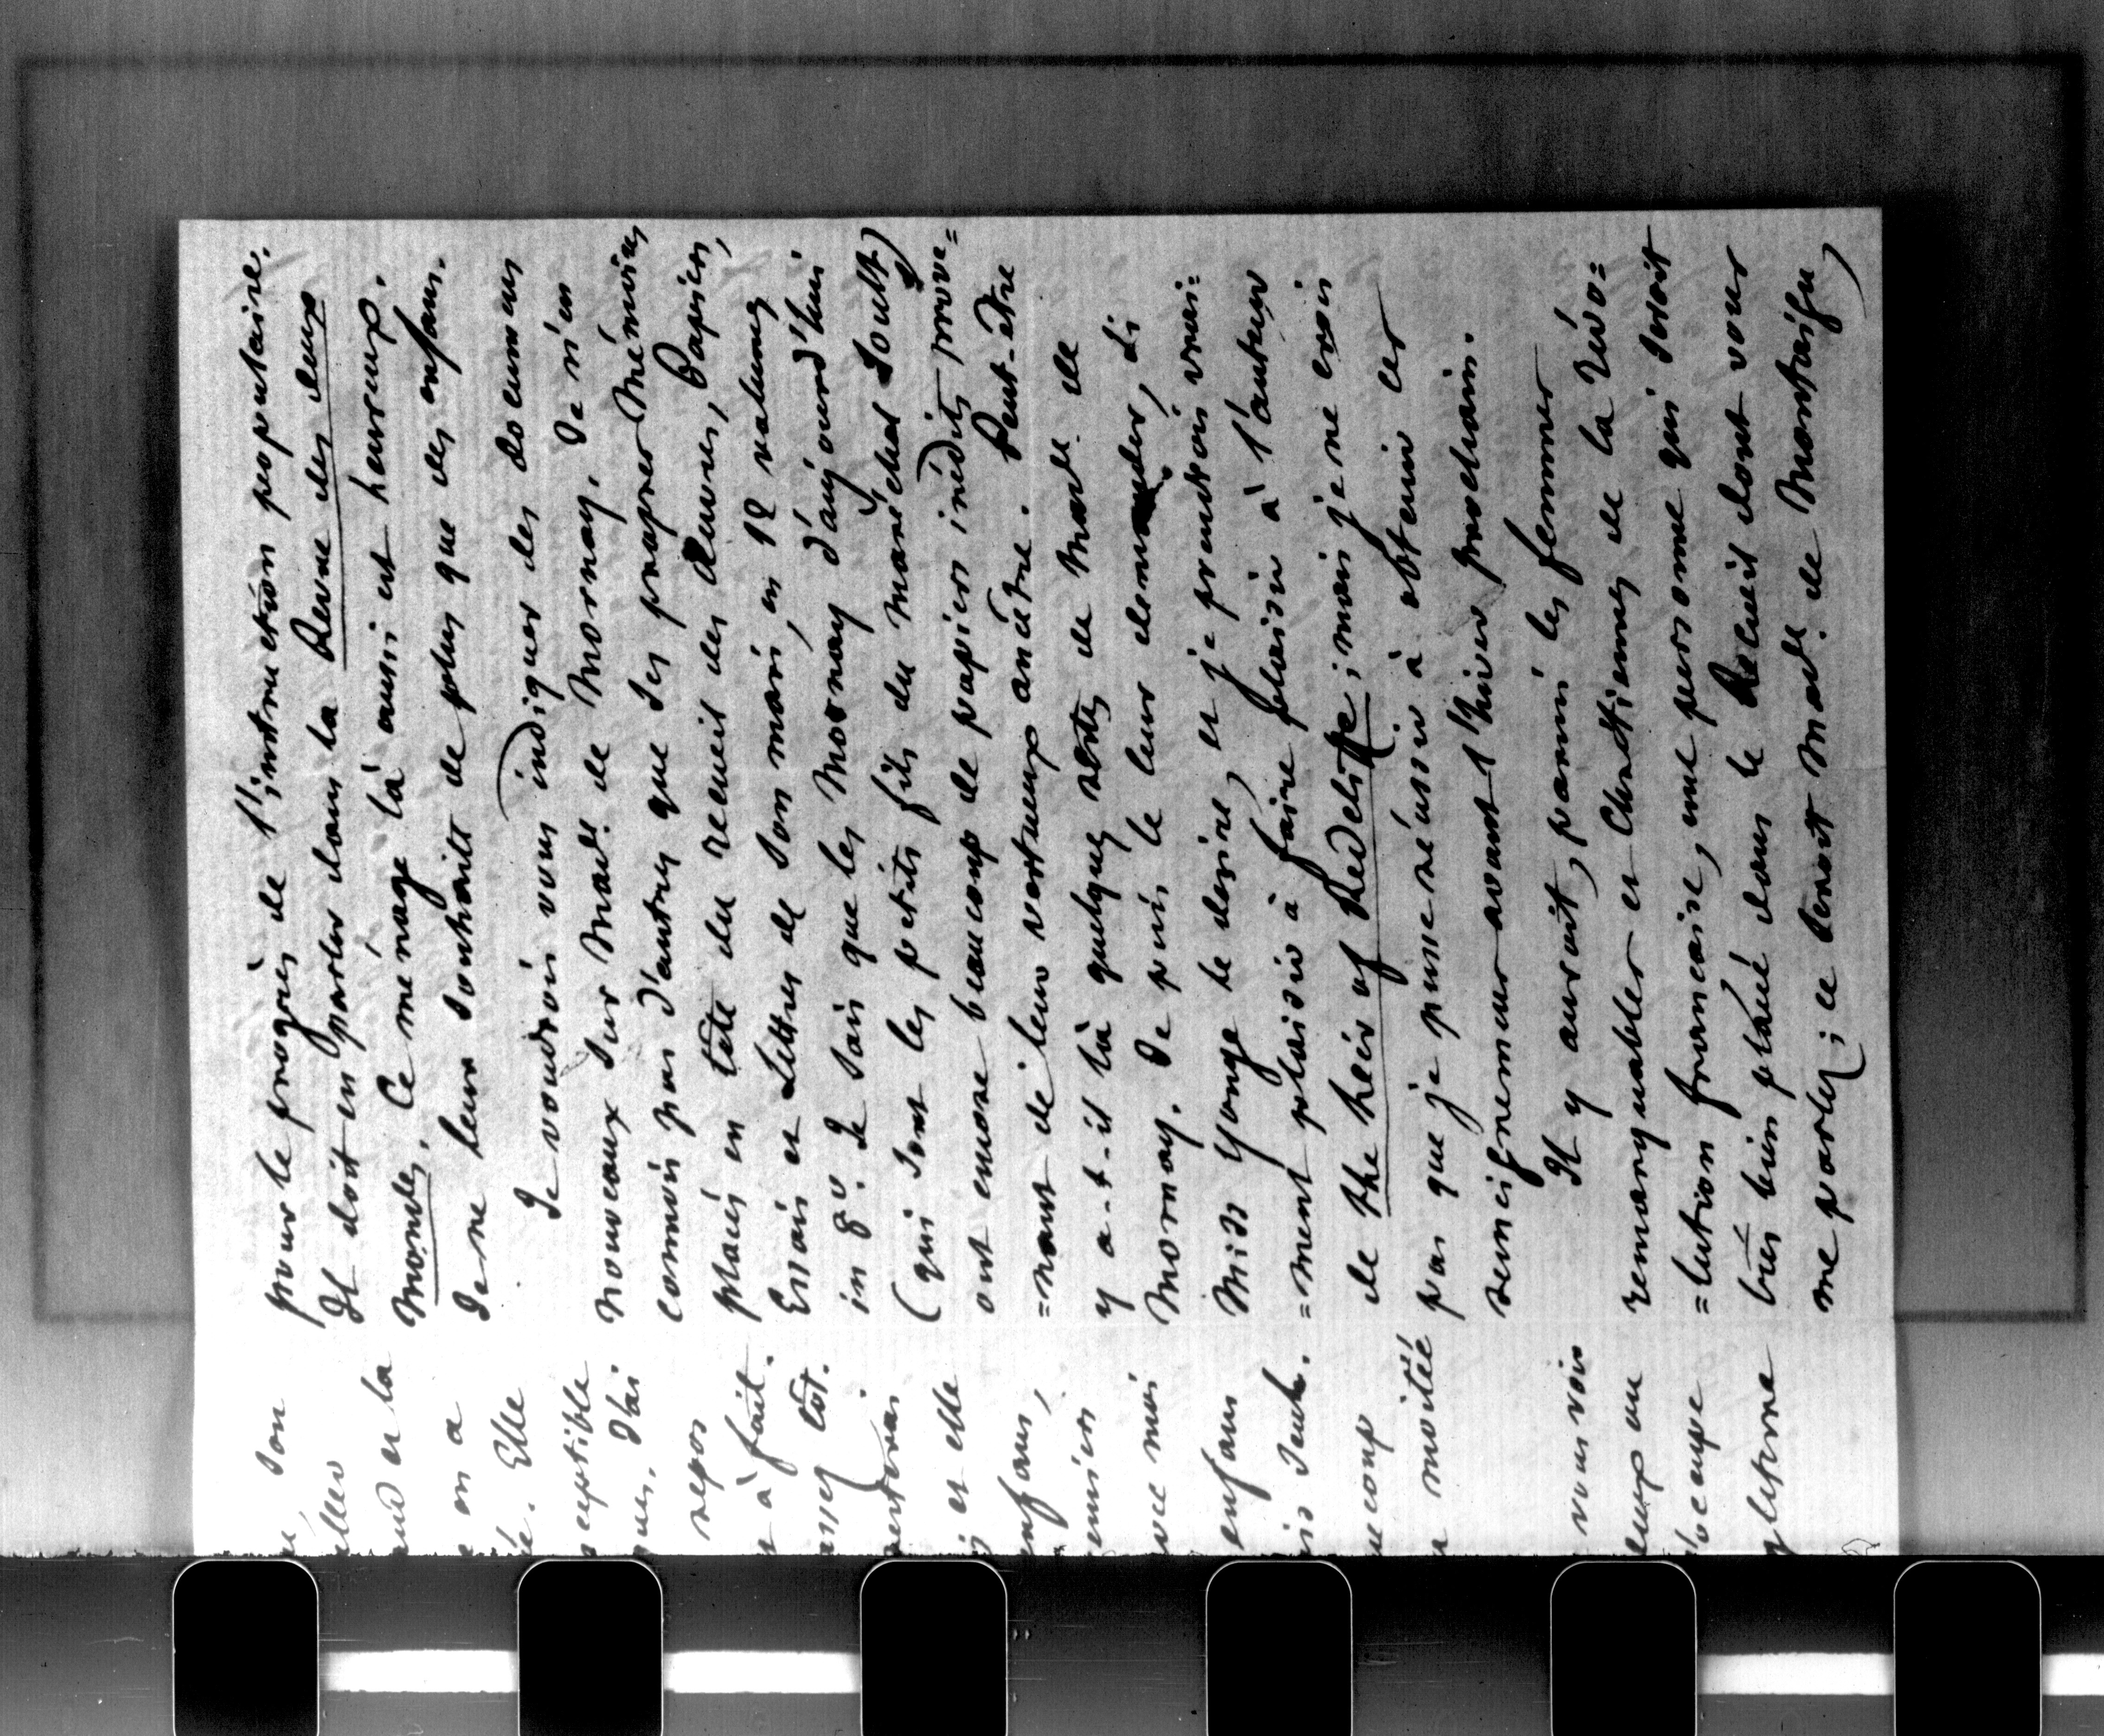 pour le progrès de l'instruction populaire.
Il doit en parler dans la Revue des deux
Mondes. Ce ménage là aussi est heureux.
Je ne leur souhaite de plus que des enfans.
Je voudrois vous indiquer des documens
nouveaux sur Made de Mornay. Je n'en
connois pas d'autres que ses propres Mémoires
placés en tête du recueil des Œuvres, Papiers,
Essais et Lettres de son mari, en 12 volumes
in 8o. Je sais que les Mornay d'aujourd'hui
(qui sont les petits fils du maréchal Soult)
ont encore beaucoup de papiers inédits prove=
=nant de leur vertueux ancêtre. Peut-être
y a-t-il là quelques restes de Made de
Mornay. Je puis le leur demander, si
Miss Yonge le desire, et je prendrois vrai=
=ment plaisir à faire plaisir à l'auteur
de the heir of Redcliffe; mais je ne crois
pas que je puisse réussir à obtenir ces
renseignemens avant l'hiver prochain.
Il y auroit, parmi les femmes
remarquables et Chrétiennes de la Révo=
=lution française, une personne qui seroit
très bien placée dans le Recueil dont vous
me parlez; ce seroit Made de Montaigu
son
et la
en a
Elle
J'ai
repos
à fait.
assez tôt.
et elle
enfans,
moi
enfans
seul.
moitié
vous vois